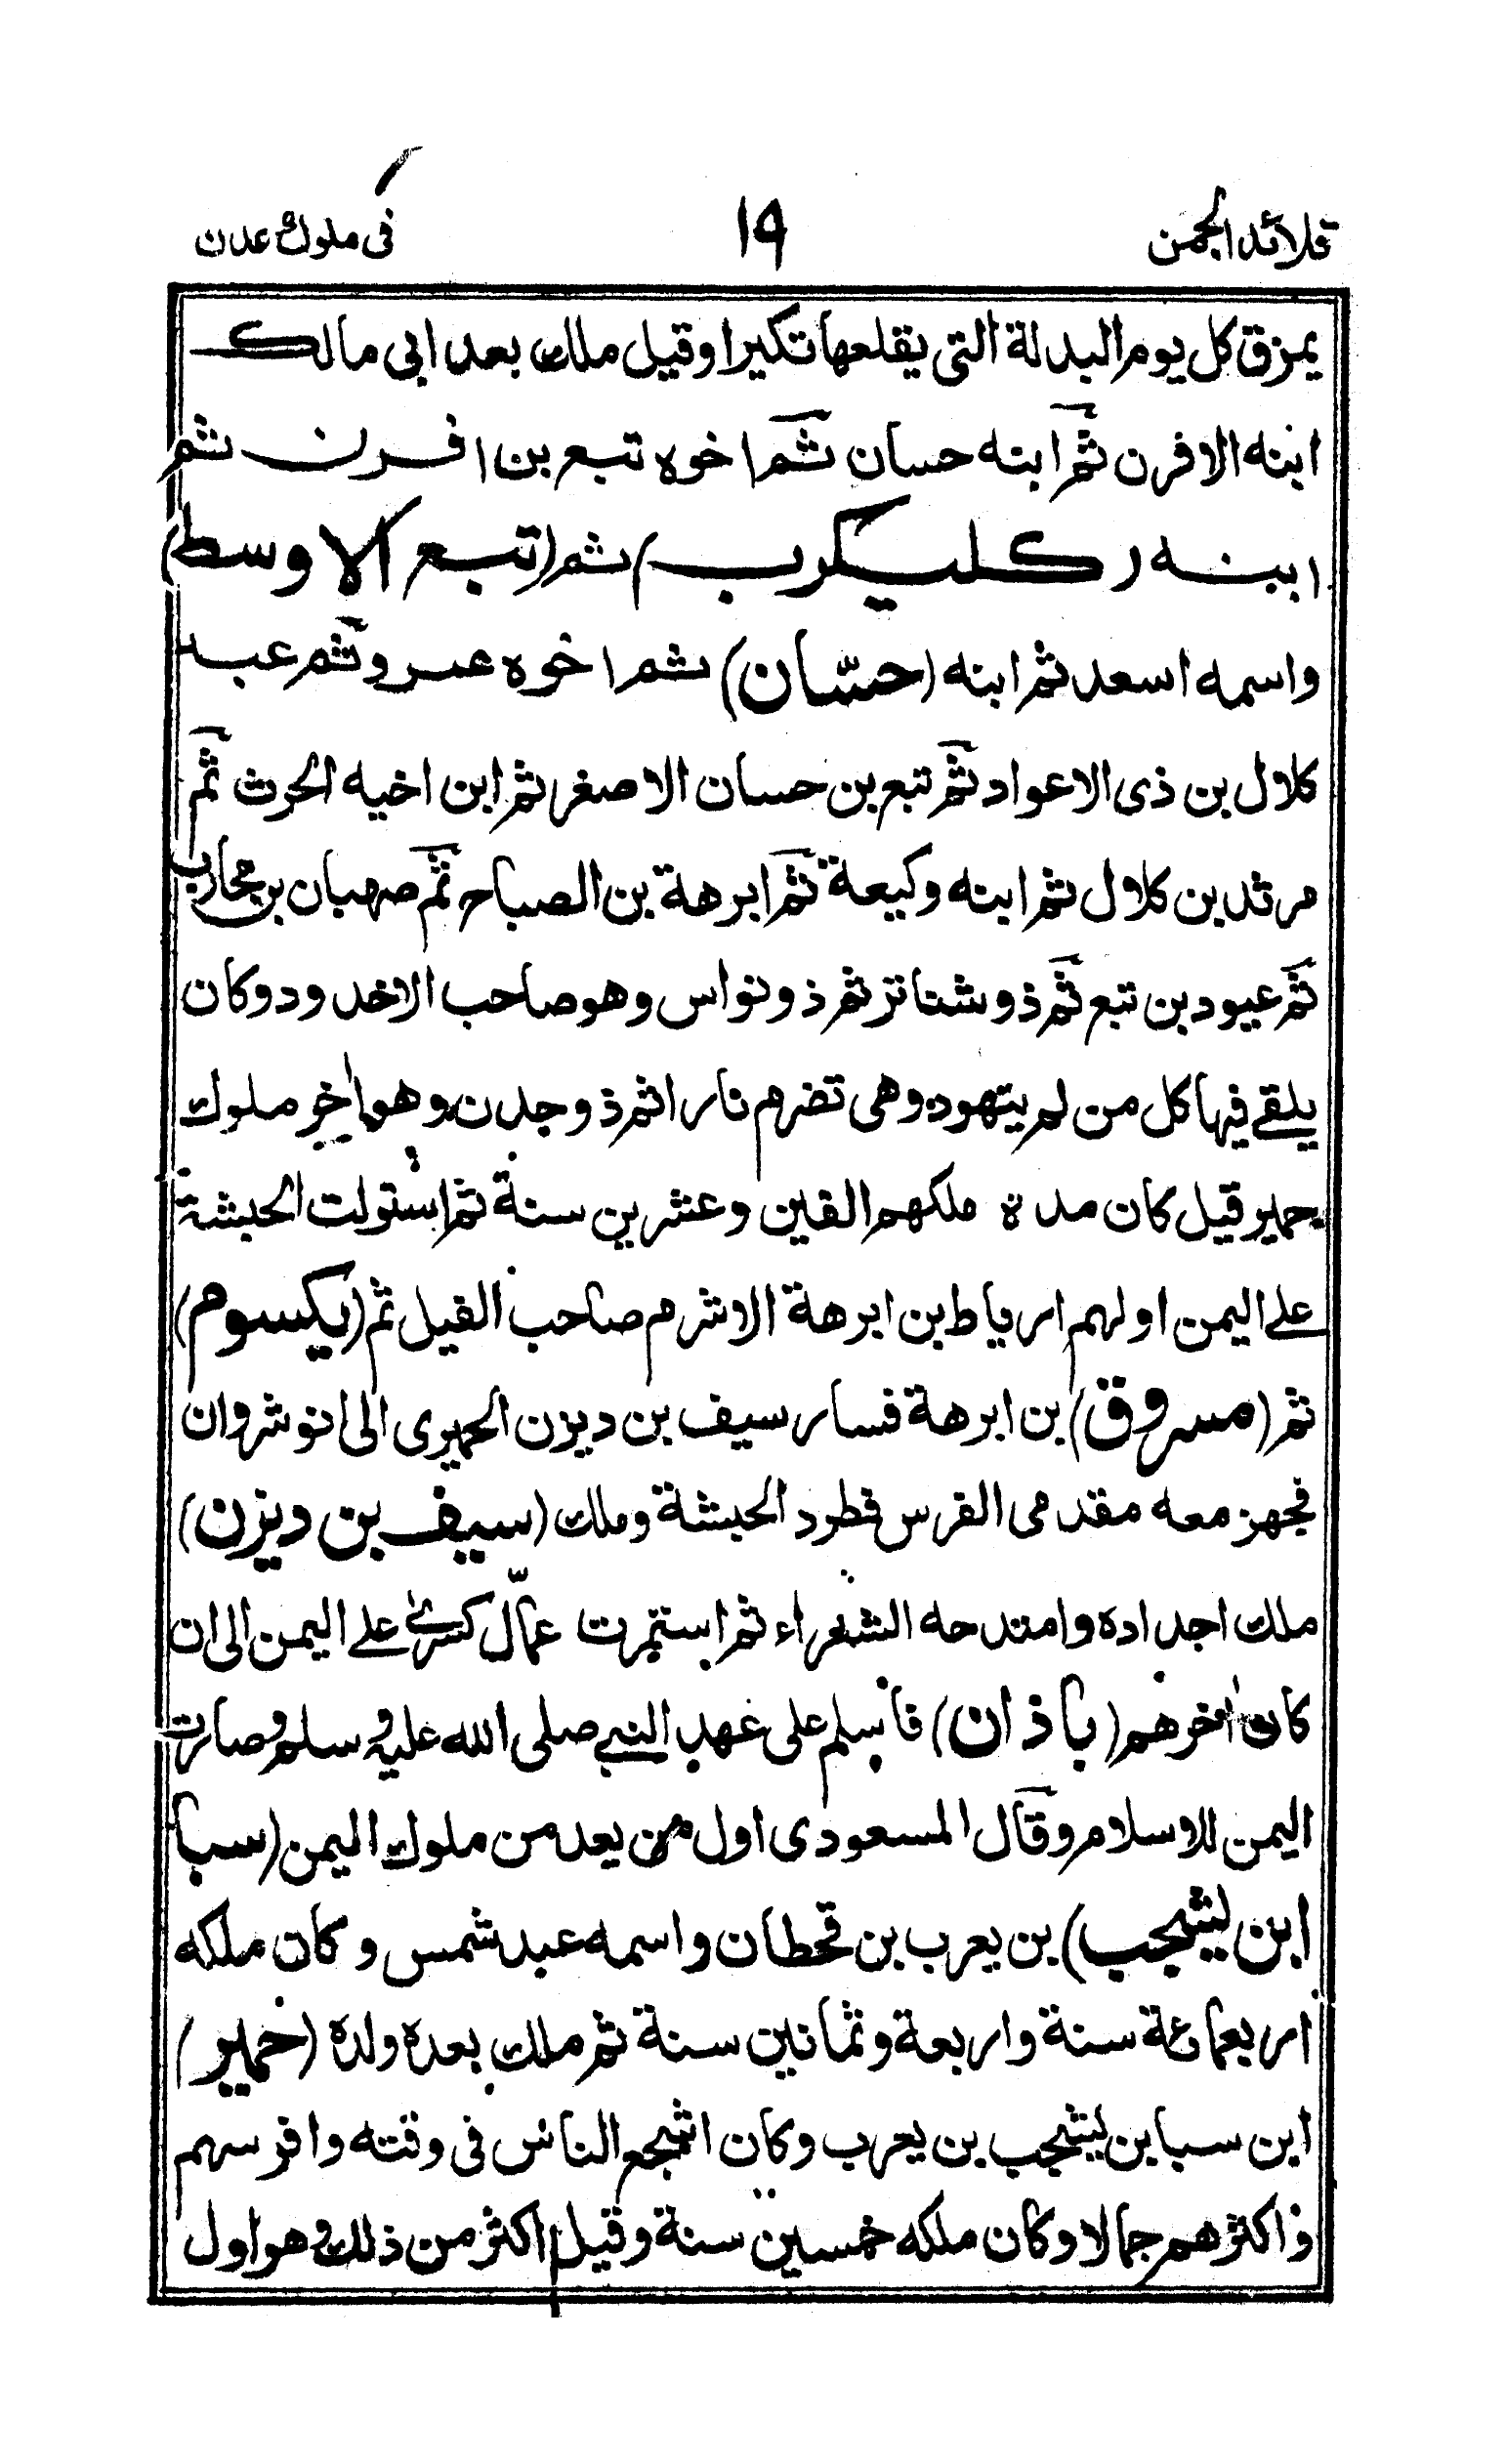 قلائد الجمن ١٩ فى ملوك عدن
يمزق كل يوم البدلة التى يقلعها تكبرا وقيل ملك بعد ابى مالك
ابنه الافرن ثم ابنه حسان ثم اخوه تبع بن افرن ثم
ابنه (كليكرب) ثم (تبع الاوسط)
واسمه اسعد ثم ابنه (حسّان) ثم اخوه عمرو ثم عبد
كلال بن ذى الاعواد ثم تبع بن حسان الاصغر ثم ابن اخيه الحرث ثم
مرثد بن كلال ثم ابنه وكيعة ثم ابرهة بن الصباح ثم صهبان بن محارب
ثم عيود بن تبع ثم ذو شناتر ثم ذو نواس وهو صاحب الاخدود وكان
يلقے فيها كل من لم يتهود وهى تضرم نارا ثم ذو جدن وهو اٰخر ملوك
حمير قيل كان مدة ملكهم الفين وعشرين سنة ثم استولت الحبشة
علے اليمن اولهم ارياط بن ابرهة الاشرم صاحب الفيل ثم (يكسوم)
ثم (مسروق) بن ابرهة فسار سيف بن ديزن الحميرى الى انوشروان
فجهز معه مقدمى الفرس فطرد الحبشة وملك (سيف بن ديزن)
ملك اجداده وامتدحه الشعراء ثم استمرت عمّال كسرىٰ علے اليمن الى ان
كان اٰخرهم (باذان) فاسلم على عهد النبے صلى الله عليه وسلم وصارت
اليمن للاسلام وقال المسعودى اول من يعد من ملوك اليمن (سبا
ابن يشجب) بن يعرب بن قحطان واسمه عبد شمس وكان ملكه
اربعمائة سنة واربعة وثمانين سنة ثم ملك بعده ولده (حمير)
ابن سبا بن يشجب بن يعرب وكان اشجع الناس فى وقته وافرسهم
واكثرهم جمالا وكان ملكه خمسين سنة وقيل اكثر من ذلك وهو اول